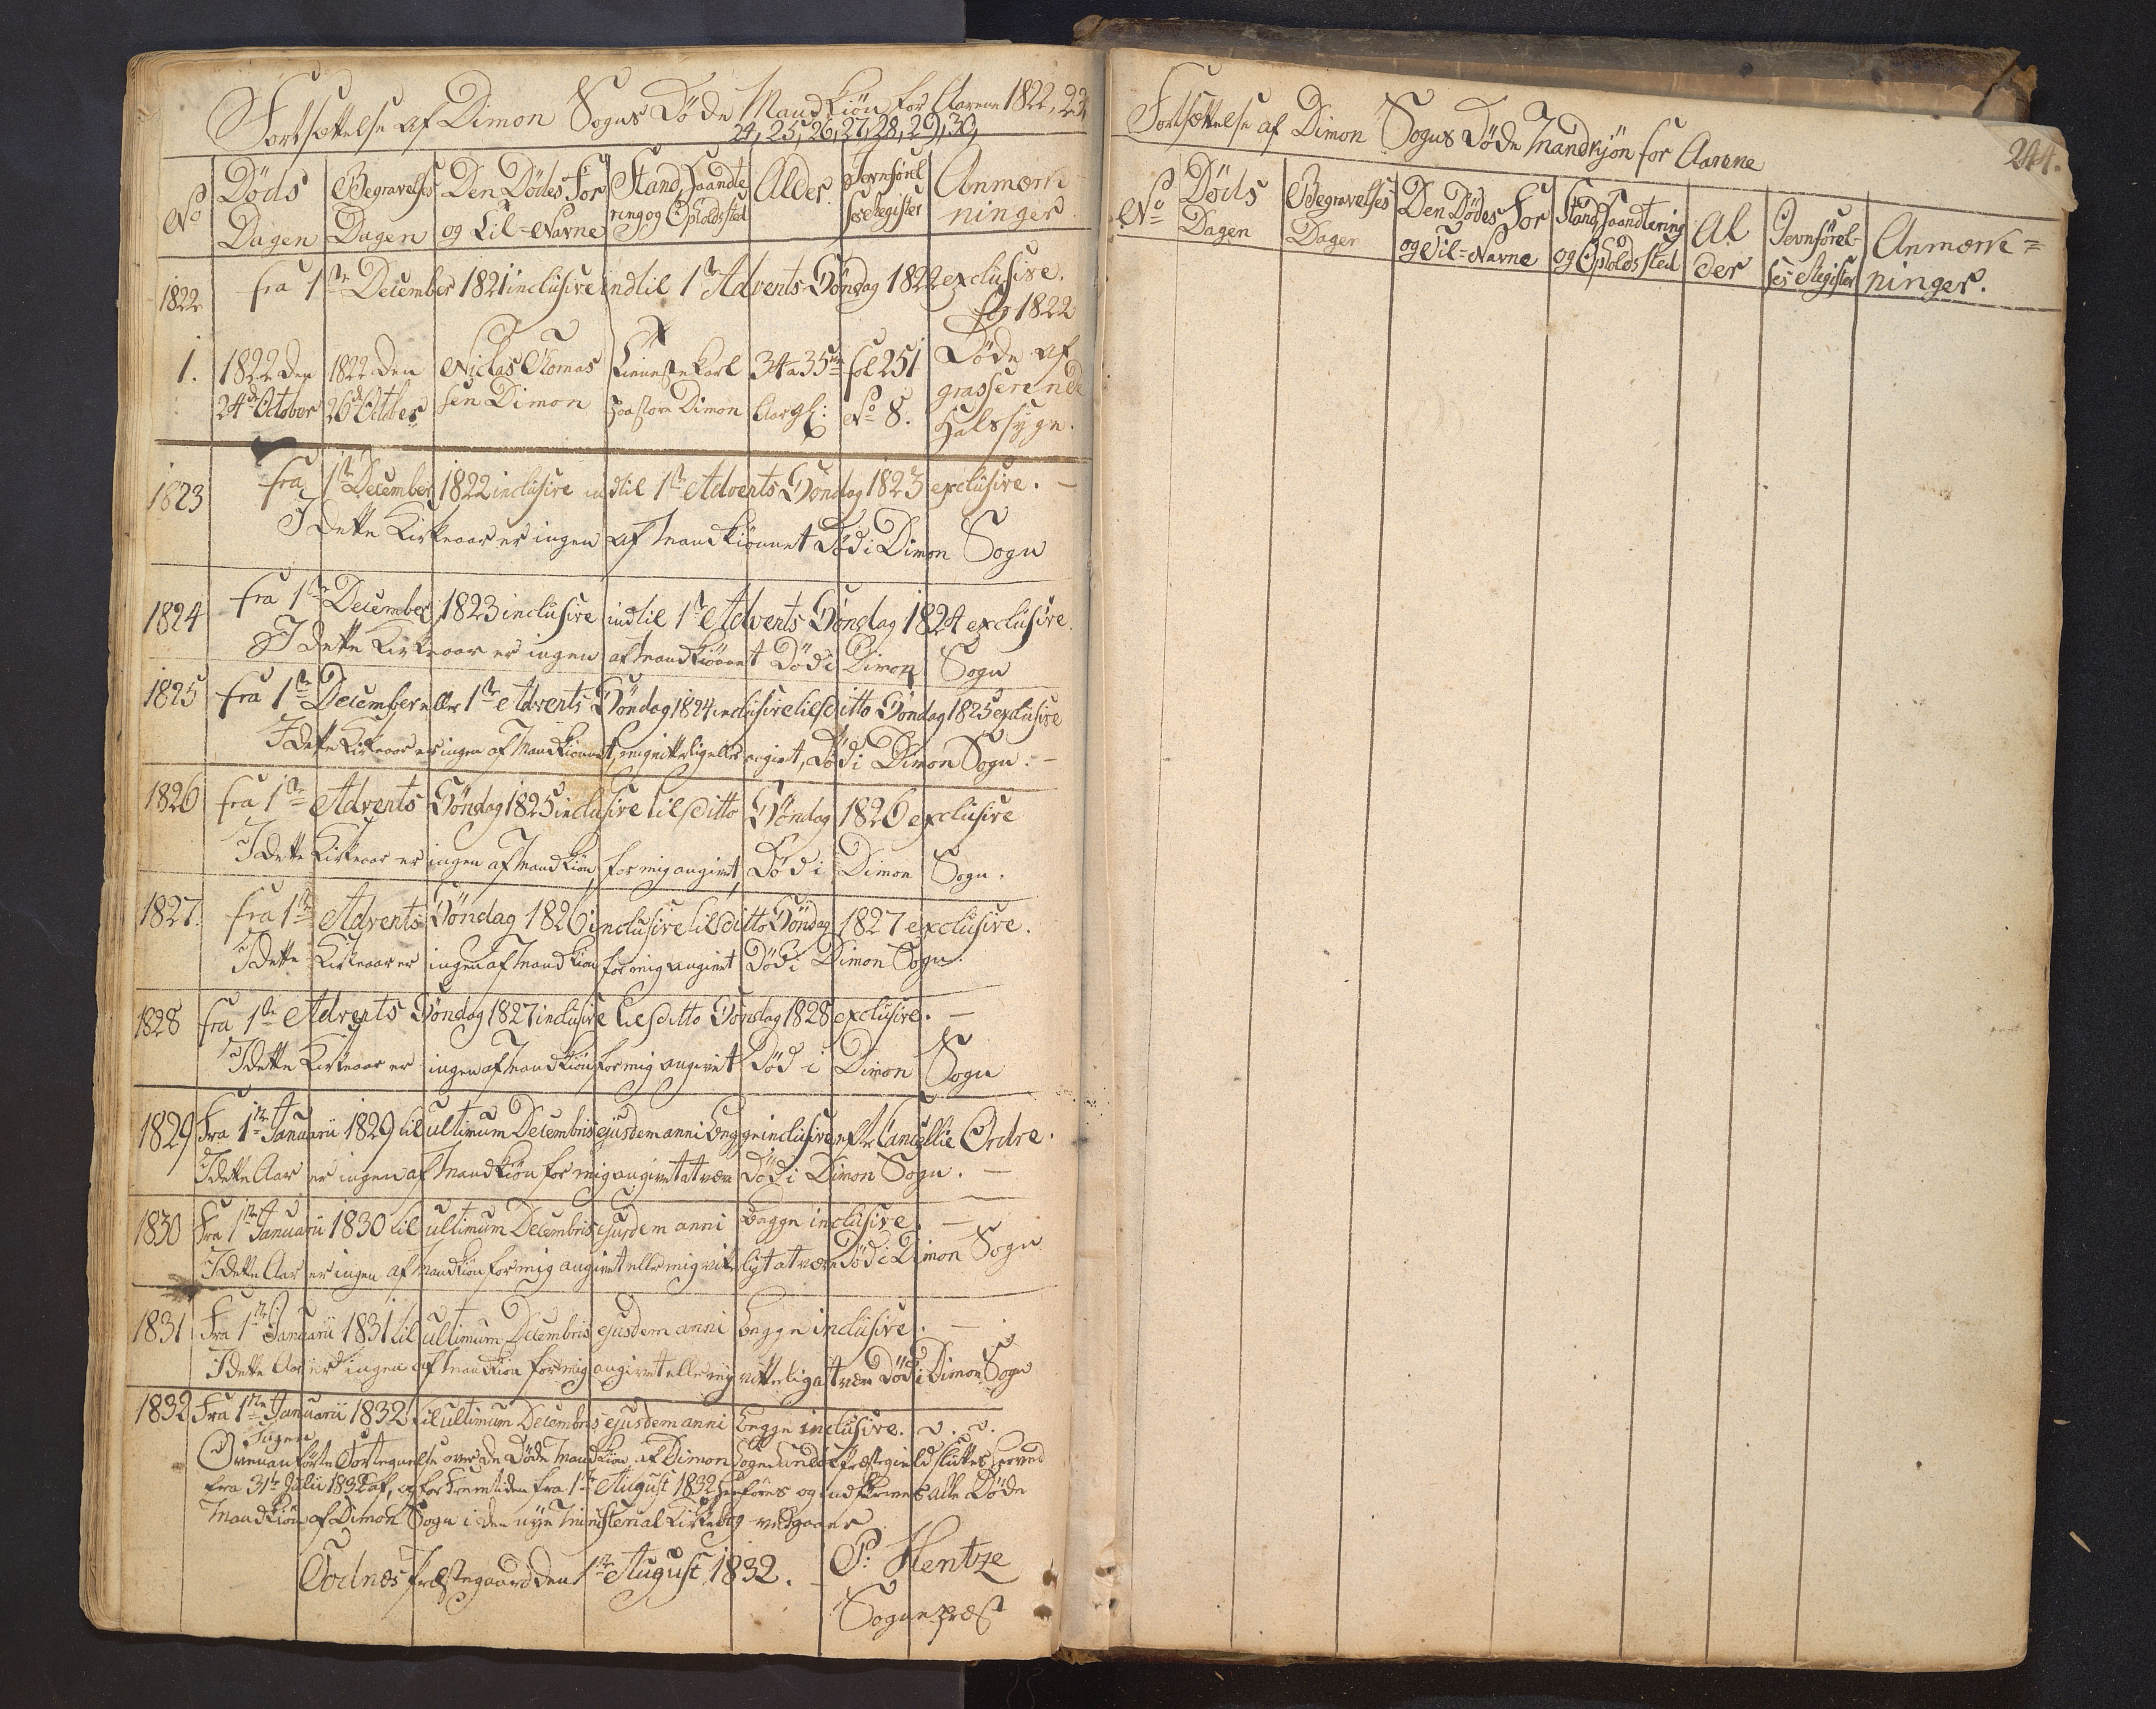 Fortsættelse af Dimon Sogns Døde Mandkiön for Aarene 1822, 23,
24, 25, 26, 27, 28, 29, 30,
No
Døds Dagen
Begravelses Dagen
Den Dødes For og Til=Navne
Stand, Haandte ring og Opholdssted
Alder.
Jevnførel ses Register
Anmærk ninger.
1822 fra 1ste December 1821 inclusive indtil 1ste Advents Søndag 1822 exclusive.
1822
1. 1822 den 1822 den Niclas Thomas Tieneste Karl 34 a 35 fol 251 Døde af
24de October 26de Octbr sen Dimon paa store Dimon Aar gl: No 8. grasserende
Halssyge.
1823 fra 1ste December 1822 inclusive indtil 1ste Advents Søndag 1823 exclusive. —
I dette Kirkeaar er ingen af Mandkiønnet Död i Dimon Sogn
1824 fra 1ste December 1823 inclusive indtil 1ste Advents Søndag 1824 exclusive.
I dette Kirkeaar er ingen af Mandkiønnet Död i Dimon Sogn
1825 fra 1ste December eller 1ste Advents Søndag 1824 inclusive til ditto Søndag 1825 exclusive
I dette Kirkeaar er ingen af Mandkiønnet, mig vitterlig eller angivet, Död i Dimon Sogn. —
1826 fra 1ste Advents Søndag 1825 inclusive til ditto Søndag 1826 exclusive
I dette Kirkeaar er ingen af Mandkiøn, for mig angivet, Död i Dimon Sogn.
1827. fra 1ste Advents Søndag 1826 inclusive til ditto Søndag 1827 exclusive.
I dette Kirkeaar er ingen af Mandkiøn for mig angivet Död i Dimon Sogn.
1828 fra 1ste Advents Søndag 1827 inclusive til ditto Søndag 1828 exclusive. —
I dette Kirkeaar er ingen af Mandkiøn for mig angivet Död i Dimon Sogn
1829 Fra 1ste Januarii 1829 til ultimum Decembris ejusdem anni begge inclusive efter Cancellie Ordre.
I dette Aar er ingen af Mandkiøn for mig angivet at være Död i Dimon Sogn. —
1830 Fra 1ste Januarii 1830 til ultimum Decembris ejusdem anni begge inclusive. —
I dette Aar er ingen af Mandkiøn for mig angivet eller mig vitterligt at være Död i Dimon Sogn
1831 Fra 1ste Januarii 1831 til ultimum Decembris ejusdem anni begge inclusive. —
I dette Aar er ingen af Mandkiøn for mig angivet eller mig vitterligt at være Död i Dimon Sogn
1832 Fra 1ste Januarii 1832 til ultimum Decembris ejusdem anni begge inclusive.
Ingen
Ovenanførte Fortegnelse over de Døde Mandkiøn af Dimon Sogn Præstegield sluttes herved
fra 31te Julii 1832 af, og for Fremtiden fra 1ste August 1832 henføres og indskrives alle Døde
Mandkiøn af Dimon Sogn i den nye Ministerial Kirkebog
Qvalnes Præstegaard den 1ste August 1832. — P: Hentze
Sognepræst
Fortsættelse af Dimon Sogns Døde Mandkjön for Aarene
244.
No
Døds Dagen
Begravelses Dagen
Den Dødes For og Til=Navne
Stand, Haandtering og Opholds sted
Al der
Jevnførel= ses Register
Anmærk= ninger.